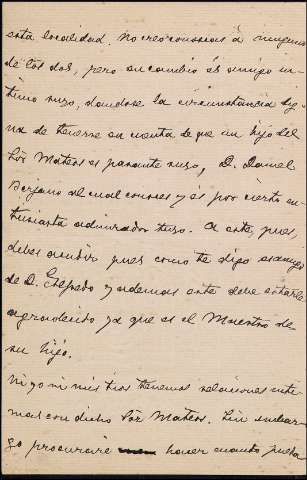 esta localidad. No creo conozcas á ninguno
de los dos, pero en cambio és amigo in-
timo suyo, dandose la circunstancia dig-
na de tenerse en cuenta de que un hijo del
Sór Mateos es pariente suyo, D. Daniel
Berjano al cual conoces y és por cierto en-
tusiasta admirador tuyo. A este, pues,
debes acudir pues como te digo es amigo
de D. and y además este debe estarle
agradecido ya que es el Maestro de
su hijo.
Ni yo ni mis tios tenemos relaciones inti-
mas con dicho Sór Mateos. Sin embar-
go procuraré hacer cuanto pueda